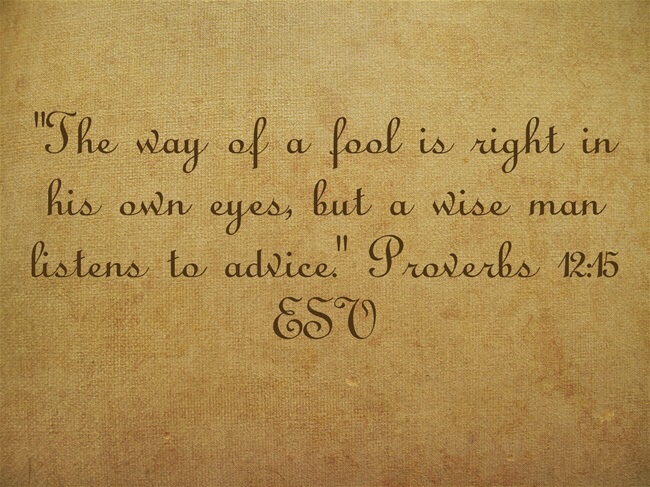 "The way of a fool is right in
his own eyes, but a wise man
listens to advice." Proverbs 12:15
ESV